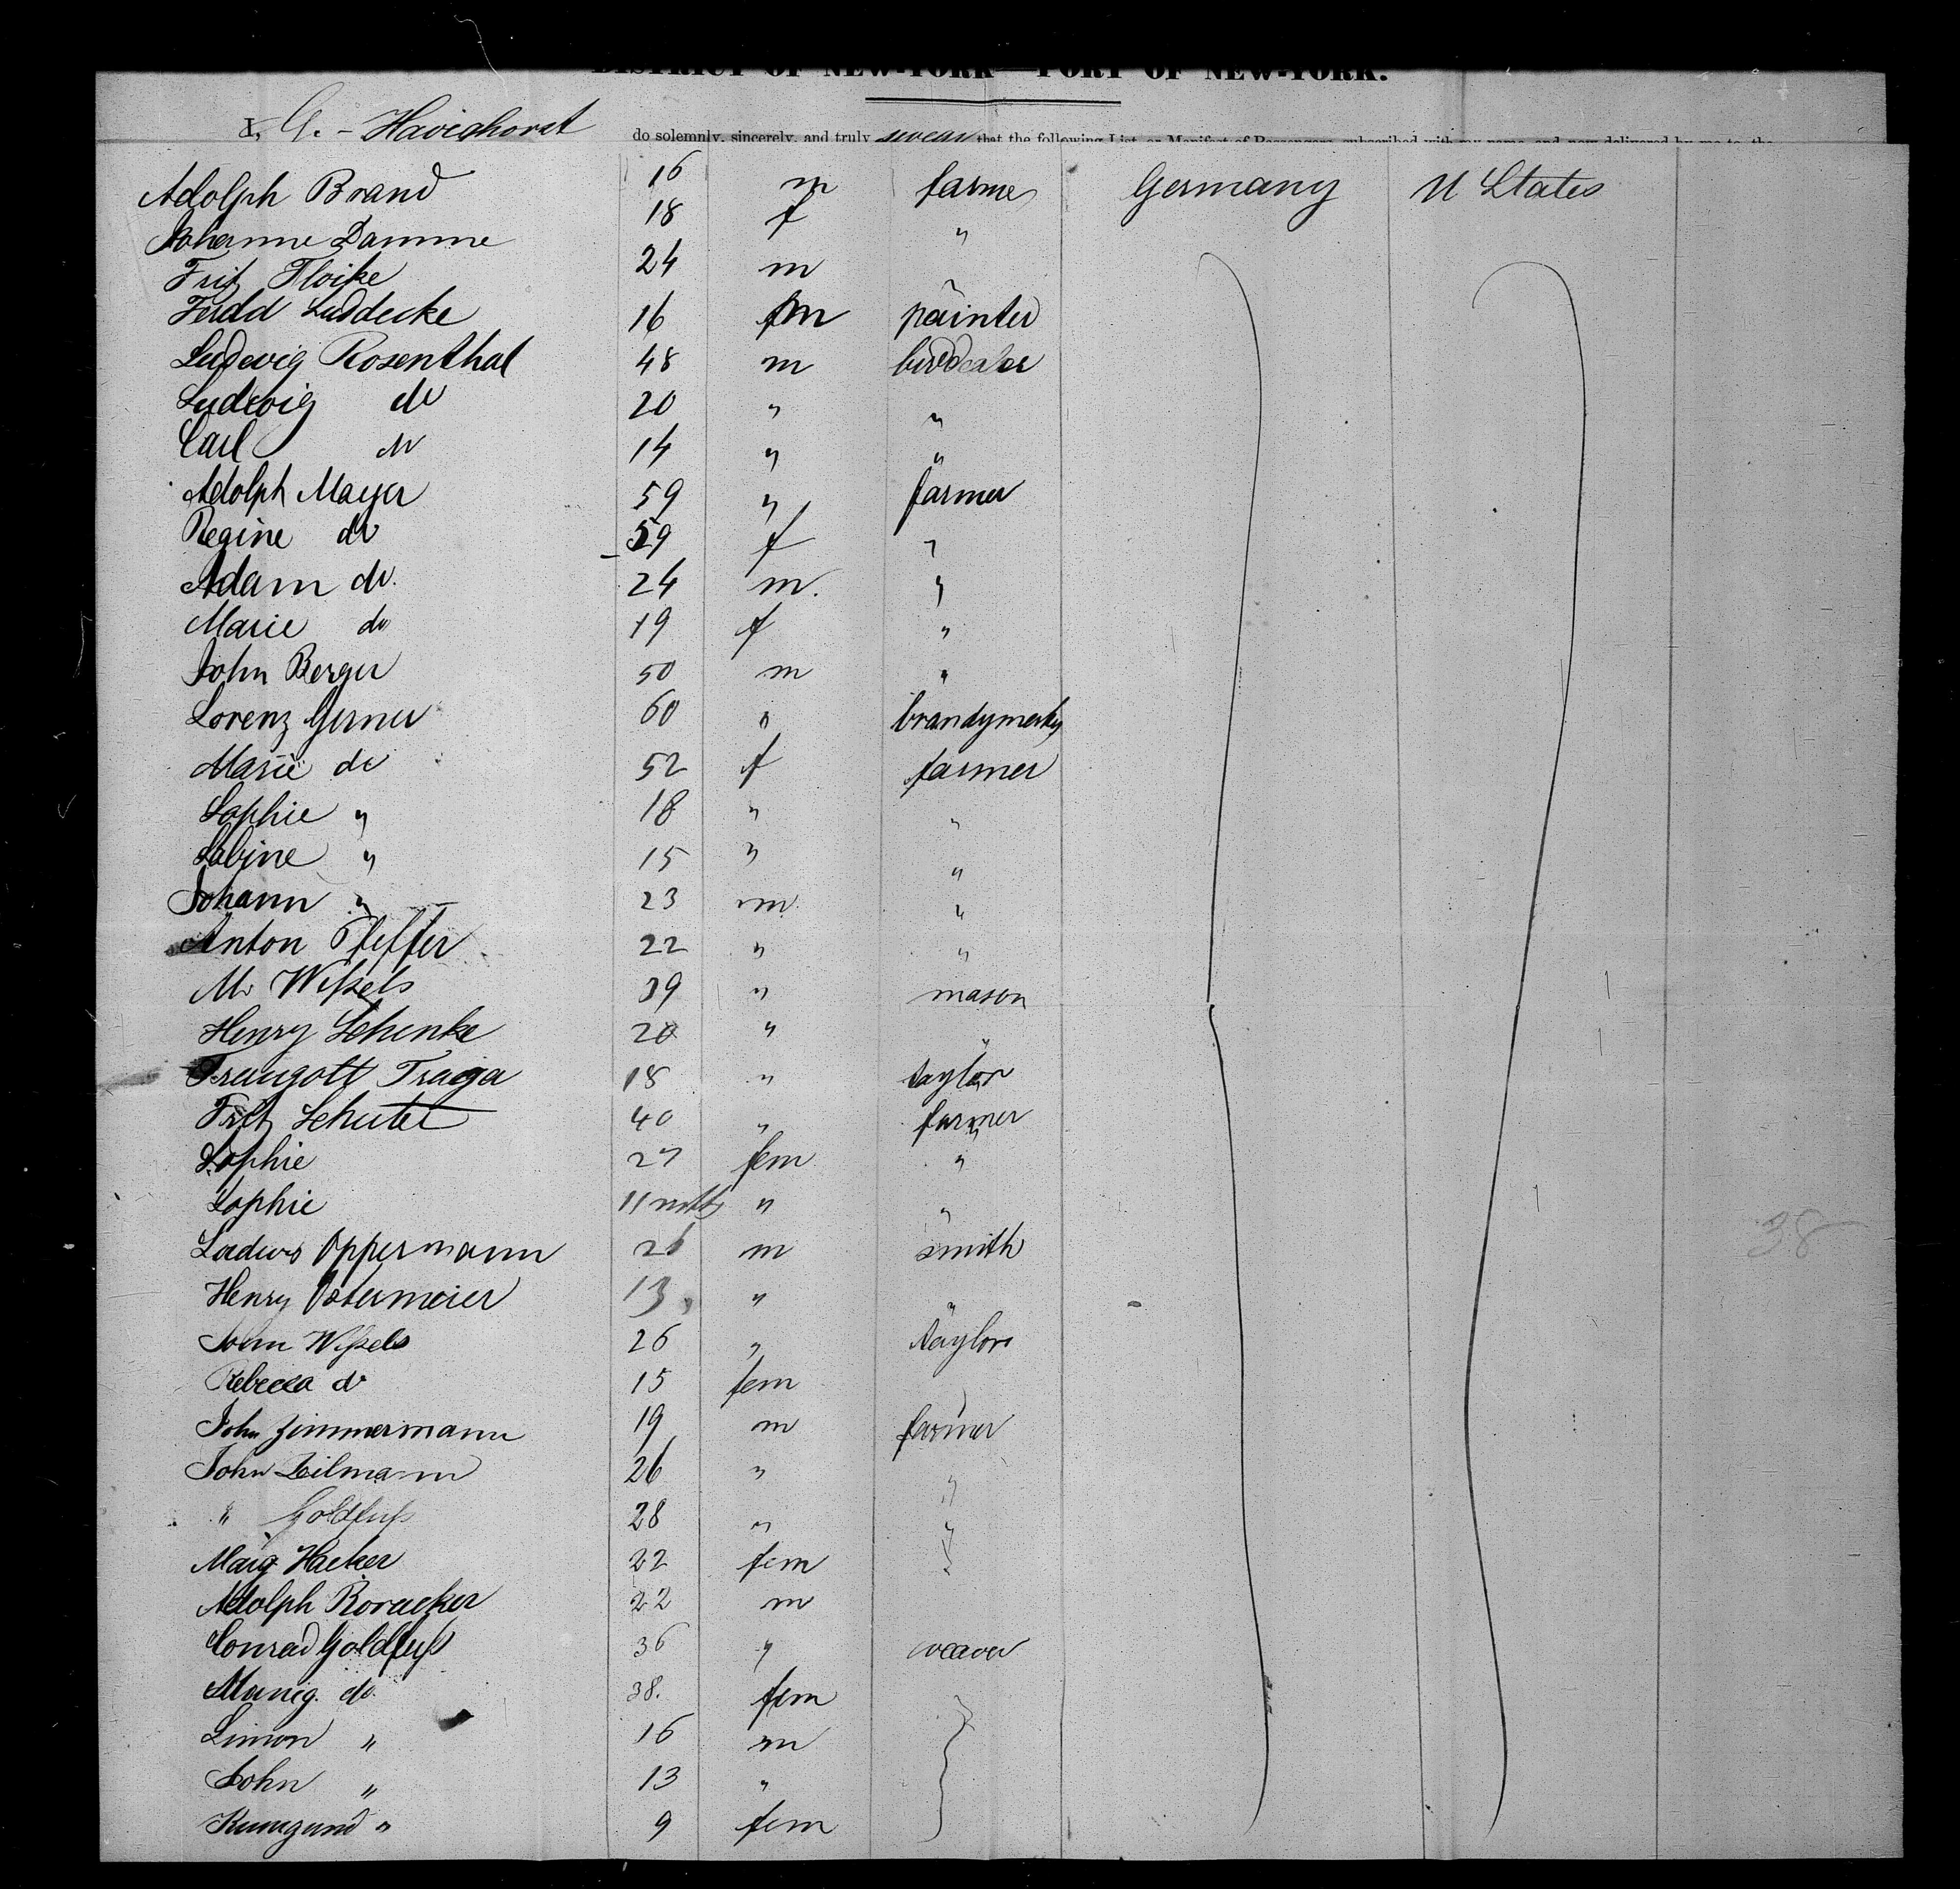 DISTRICT OF NEW-YORK—PORT OF NEW-YORK.
I, G. - Havighorst do solemnly, sincerely, and truly swear that the following List or Manifest of Passengers, subscribed with my name, and now delivered by me to the
Adolph Brand 16 m farmer Germany U States
Johanne Damme 18 f "
Fritz 24 m
Ferdd Luddecke 16 m painter "
Ludewig Rosenthal 48 m
Ludewig do 20 " "
Carl do 14 " "
Adolph Mayer 59 " farmer
Regine do 59 f "
Adam do. 24 m. "
Marie do 19 f "
John Berger 50 m "
Lorenz Gerner 60 "
Marie do 52 f farmer
Sophie " 18 " "
Sabine " 15 " "
Johann " 23 m "
Anton Pfeffer 22 " "
M. Weßels 39 " mason
Henry Schenke 20 " "
Traugott 18 " taylor
Fritz 40 " farmer
Sophie 27 fem "
Sophie 11 mths " "
Oppermann 26 m smith
Henry Ostermeier 13 " "
John Weßels 26 " taylor
Rebecca do 15 fem
John Zimmermann 19 m farmer
John Zeilmann 26 " "
" Goldfuß 28 " "
Marg Hacker 22 fem "
Adolph 22 m
Conrad Goldfuß 36 " weaver
do. 38. fem
Simon " 16 m
John " 13 "
" 9 fem
38